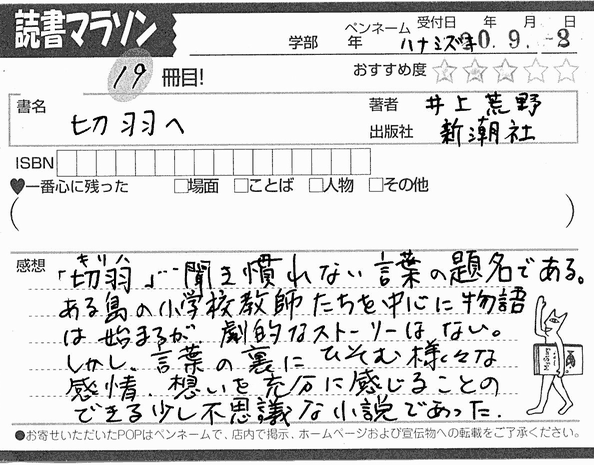 読書マラソン
学部 年 ペンネーム ハナミズキ 受付日 年 月 日
0.9.-8
19 冊目!
おすすめ度 ☆☆☆☆☆
書名 切羽へ
著者 井上荒野
出版社 新潮社
ISBN
♥一番心に残った □場面 □ことば □人物 □その他
( )
感想
きりは
「切羽」…聞き慣れない言葉の題名である。
ある島の小学校教師たちを中心に物語
は始まるが、劇的なストーリーはない。
しかし、言葉の裏にひそむ様々な
感情、想いを充分に感じることの
できる少し不思議な小説であった。
●お寄せいただいたPOPはペンネームで、店内で掲示、ホームページおよび宣伝物への転載をご了承ください。